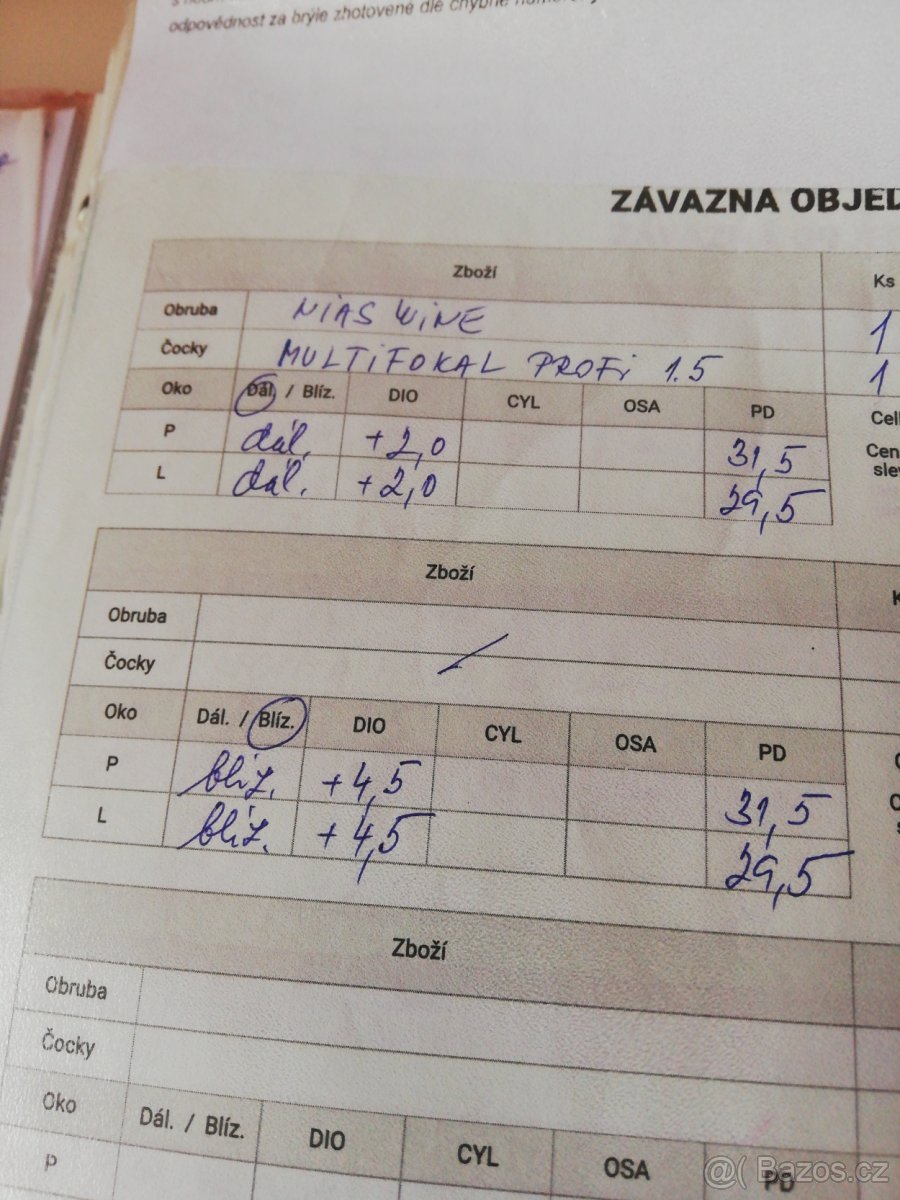 odpovědnost za brýle zhotovené dle chybně
ZÁVAZNA OBJED
Zboží Ks
Obruba NIAS WINE 1
Čocky MULTIFOKAL PROFI 1.5 1
Oko Dál / Blíz. DIO CYL OSA PD Cel
P dál. +2,0 31,5 Cen
L dál. +2,0 29,5 slev
Zboží K
Obruba
Čocky
Oko Dál. / Blíz. DIO CYL OSA PD
P blíz. +4,5 31,5
L blíz. +4,5 29,5
Zboží
Obruba
Čocky
Oko Dál. / Blíz. DIO CYL OSA PD
P
@( Bazos.cz